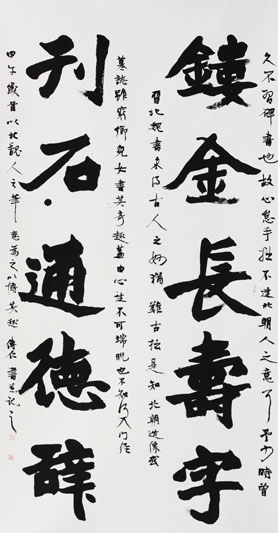 久不習碑書也故心怠手拙不逮朝人之意了予少時曾
鏤金長壽字
習北魏書未得古人之妙諦雖古拙是知北朝造像或
墓誌雖窮鄉兒女書其奇趣蓋由心生不可端睨也不知入門徑
刊石通德辭
甲午歲首以北魏人之筆意為之以傳其趣書并記之